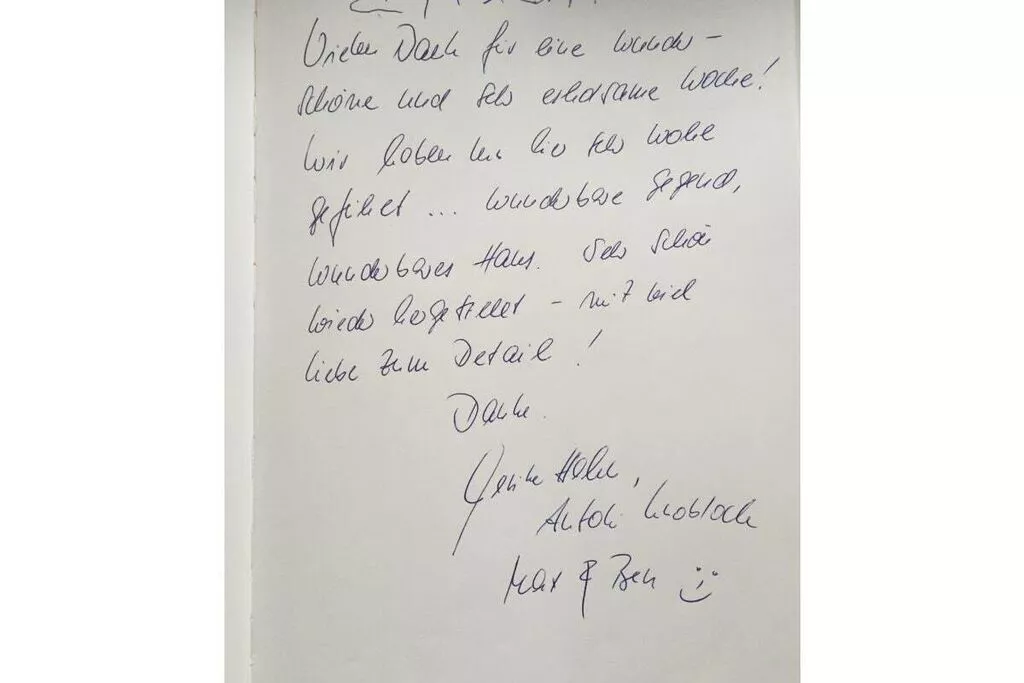 Vielen Dank für eine wunder-
schöne und sehr erholsame Woche!
Wir haben uns hier sehr wohl
gefühlt ... wunderbare Gegend,
wunderbares Haus. Sehr schön
wieder hergestellt - mit viel
Liebe zum Detail!
Danke.
Hahn,
Knobloch
Max & Ben :)